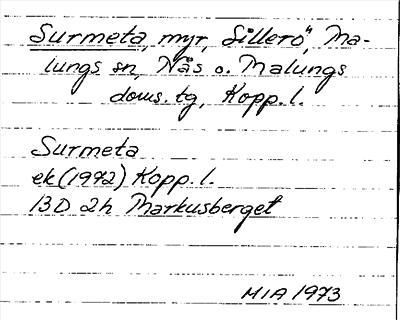 Surmeta, myr, "Sillerö", Ma-
lungs sn, Nås o. Malungs
doms. tg, Kopp. l.
Surmeta
ek (1972) Kopp. l.
13D 2h Markusberget
MIA 1973